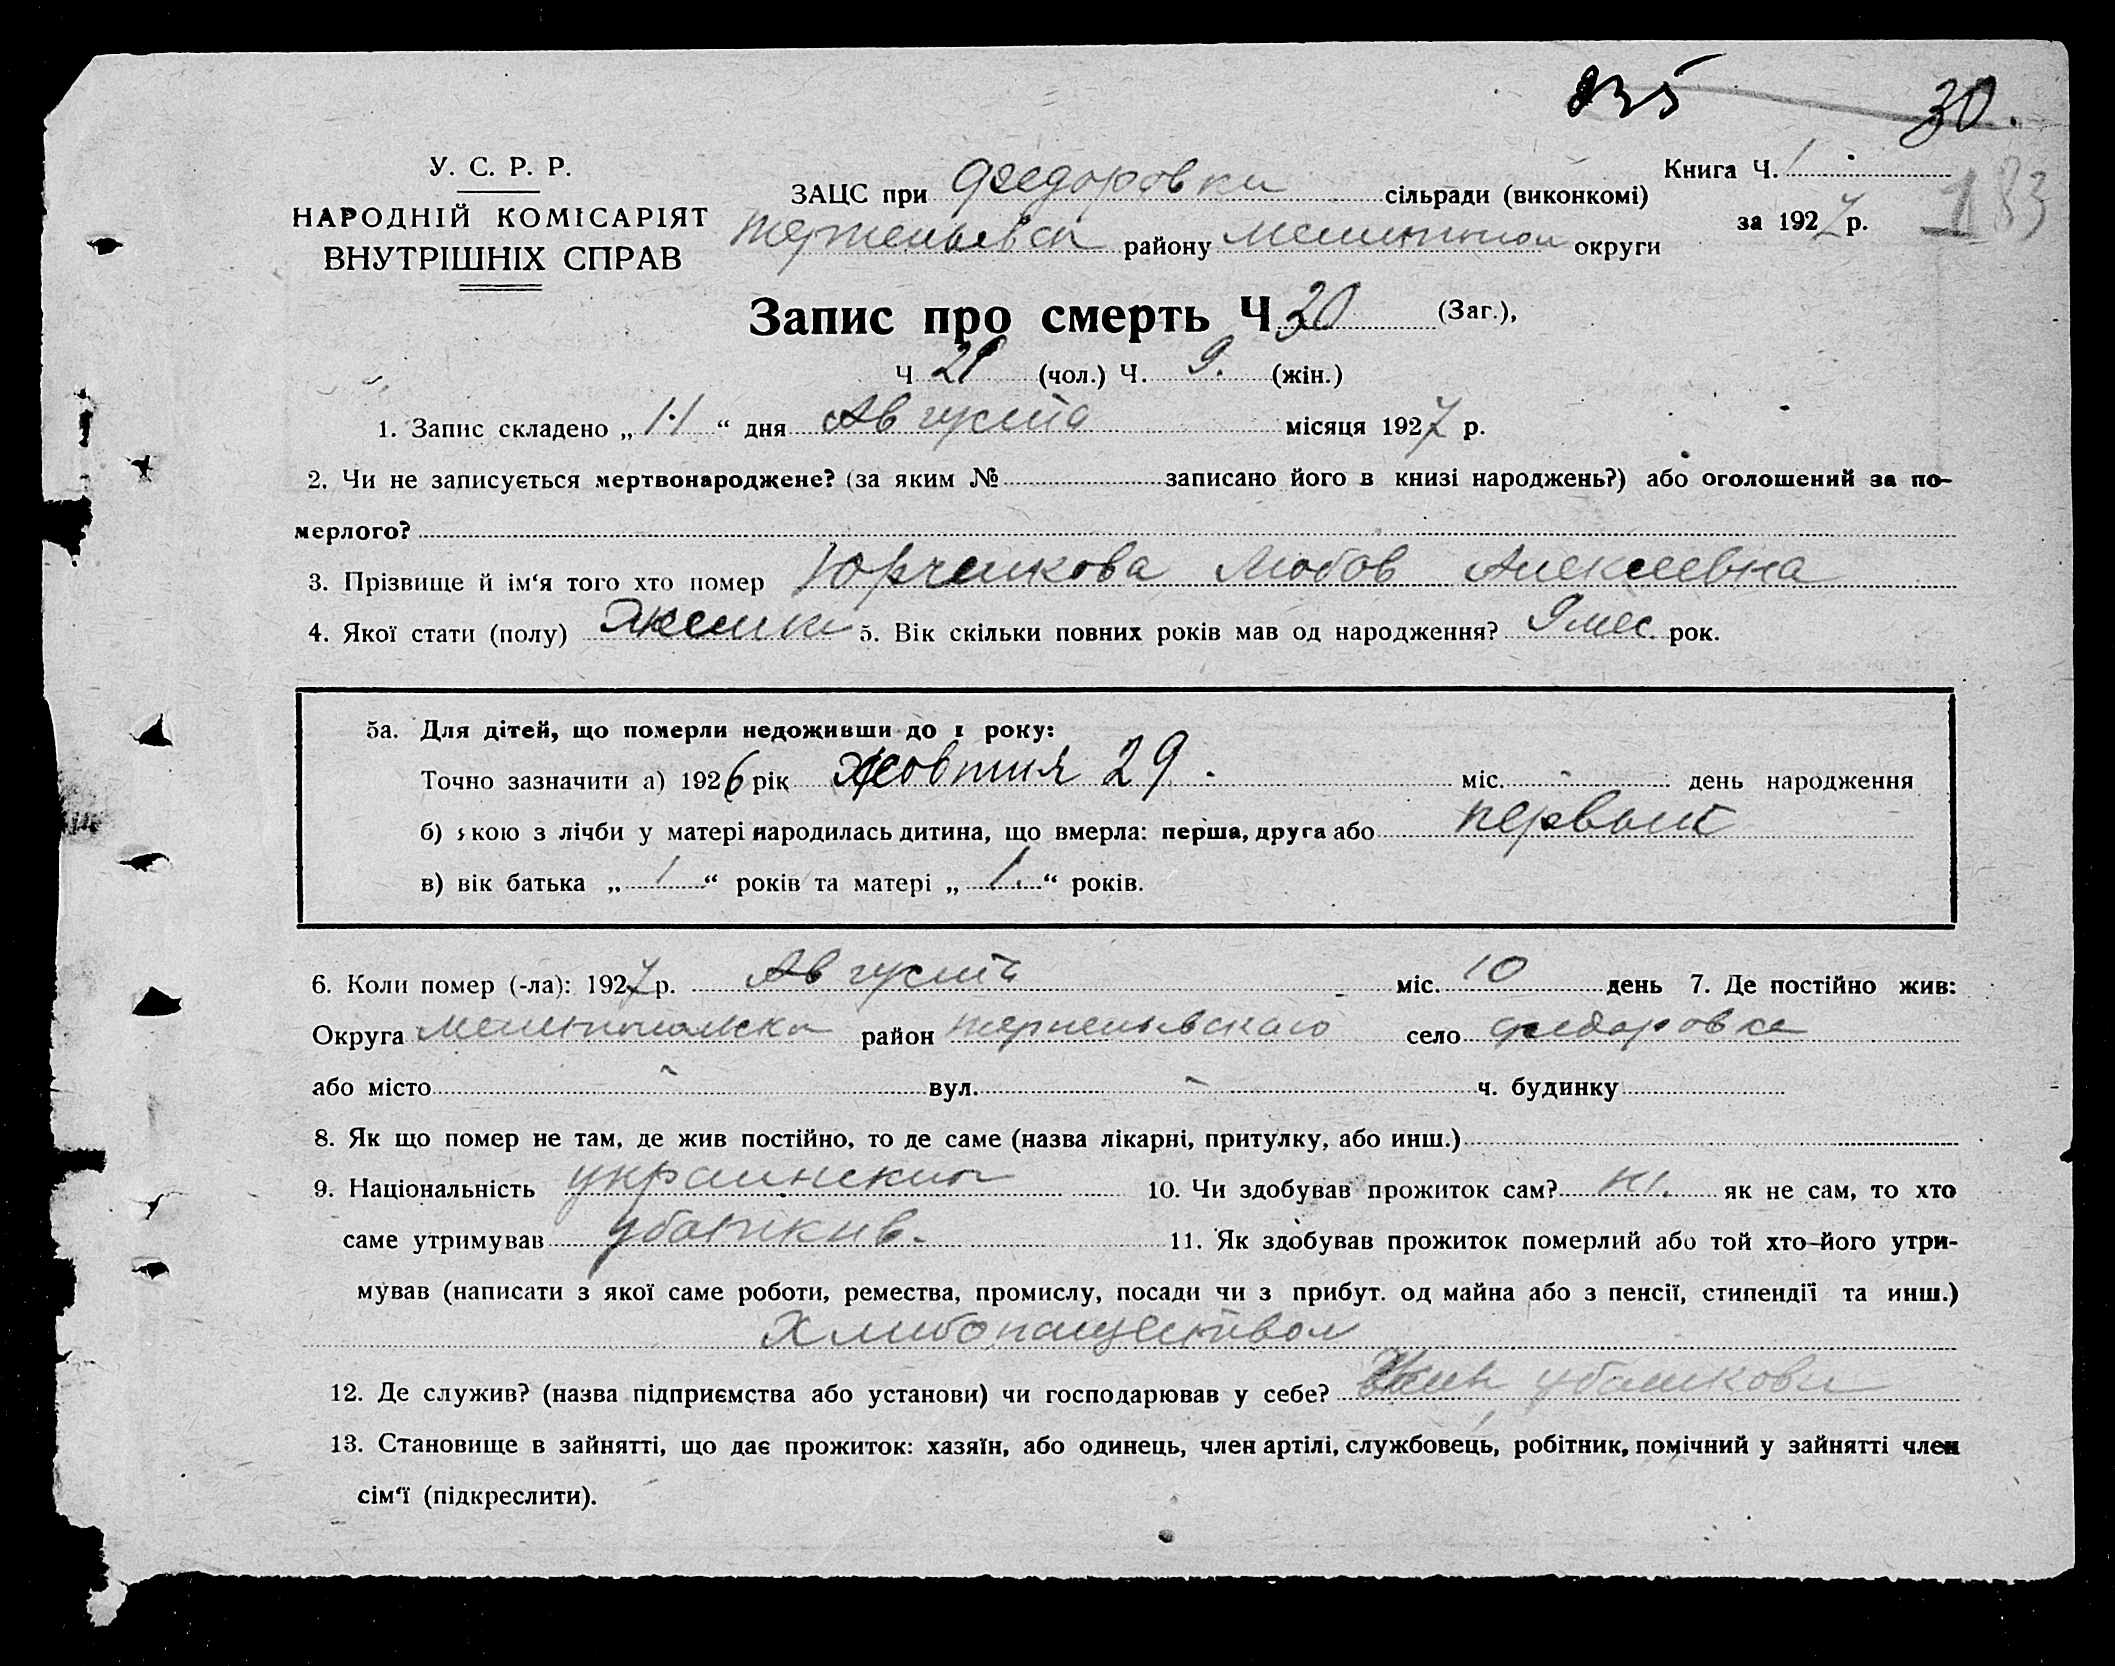 835 30.
У. С. Р. Р.
НАРОДНІЙ КОМІСАРІЯТ
ВНУТРІШНІХ СПРАВ
ЗАЦС при Федоровки сільради (виконкомі)
району округи
Книга Ч. 1
за 1927 р.
183
Запис про смерть Ч 30 (Заг.),
Ч 21 (чол.) Ч. 9. (жін.)
1. Запис складено „ 11 “ дня Августа місяця 1927 р.
2. Чи не записується мертвонароджене? (за яким № записано його в книзі народжень?) або оголошений за по-
мерлого?
3. Прізвище й ім‘я того хто помер Юрченкова Любов Алексеевна
4. Якої стати (полу) 5. Вік скільки повних років мав од народження? 9 мес. рок.
5а. Для дітей, що померли недоживши до 1 року:
Точно зазначити а) 1926 рік Жовтня 29 . міс. - день народження
б) якою з лічби у матері народилась дитина, що вмерла: перша, друга або первый
в) вік батька „ 1 “ років та матері „ 1. “ років.
6. Коли помер (-ла): 1927 р. Августа міс. 10 день 7. Де постійно жив:
Округа Мелитопольска район село Федоровка
або місто - вул. - ч. будинку
8. Як що помер не там, де жив постійно, то де саме (назва лікарні, притулку, або инш.)
9. Національність 10. Чи здобував прожиток сам? ні. як не сам, то хто
саме утримував убатькив. 11. Як здобував прожиток померлий або той хто-його утри-
мував (написати з якої саме роботи, ремества, промислу, посади чи з прибут. од майна або з пенсії, стипендії та инш.)
Хлибопашеством
12. Де служив? (назва підприємства або установи) чи господарював у себе?
13. Становище в зайнятті, що дає прожиток: хазяїн, або одинець, член артілі, службовець, робітник, помічний у зайнятті член
сім‘ї (підкреслити).